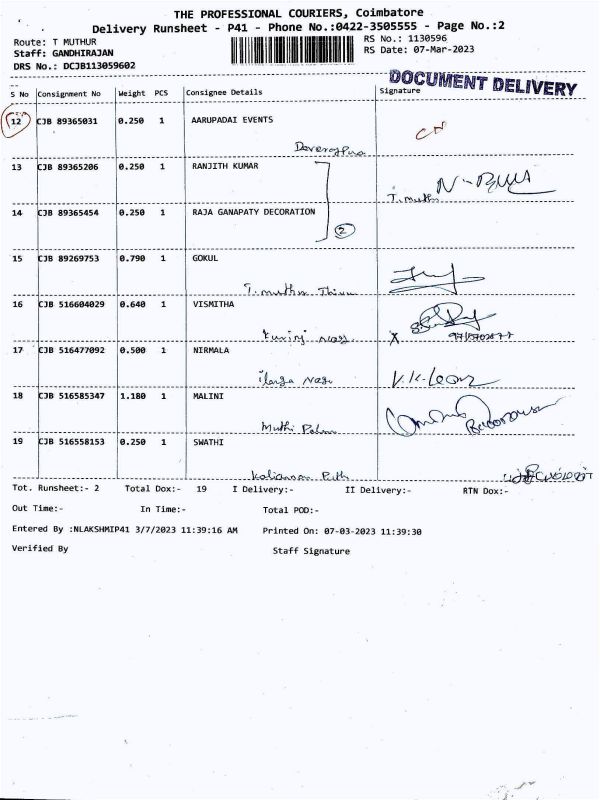 THE PROFESSIONAL COURIERS, Coimbatore
Delivery Runsheet - P41 - Phone No.:0422-3505555 - Page No.:2
Route: T MUTHUR
RS No.: 1130596
Staff: GANDHIRAJAN
RS Date: 07-Mar-2023
DRS No.: DCJB113059602
DOCUMENT DELIVERY
S No Consignment No Weight PCS Consignee Details Signature
12 CJB 89365031 0.250 1 AARUPADAI EVENTS
13 CJB 89365206 0.250 1 RANJITH KUMAR
T. muthu
14 CJB 89365454 0.250 1 RAJA GANAPATY DECORATION
2
15 CJB 89269753 0.790 1 GOKUL
T. muthur
16 CJB 516604029 0.640 1 VISMITHA
X
17 CJB 516477092 0.500 1 NIRMALA
V.K. Leong
18 CJB 516585347 1.180 1 MALINI
Muthi
19 CJB 516558153 0.250 1 SWATHI
Tot. Runsheet:- 2 Total Dox:- 19 I Delivery:- II Delivery:- RTN Dox:-
Out Time:- In Time:- Total POD:-
Entered By :NLAKSHMIP41 3/7/2023 11:39:16 AM Printed On: 07-03-2023 11:39:30
Verified By Staff Signature